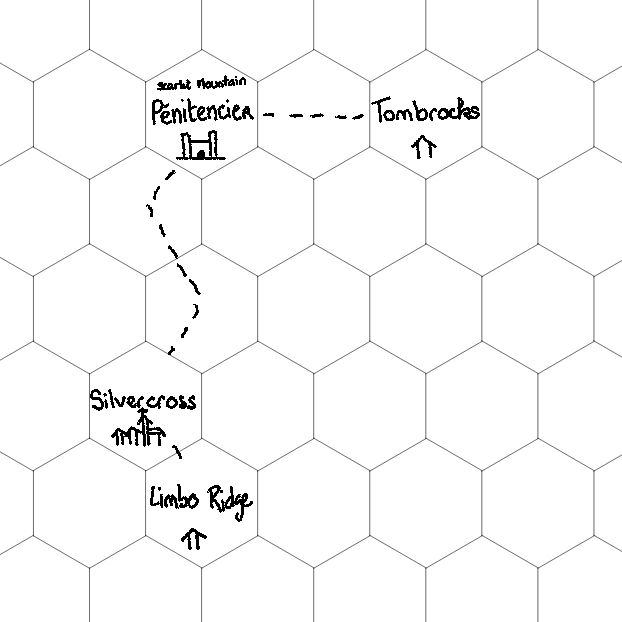 Scarlet Mountain
Pénitencier
Tombrocks
Silvercross
Limbo Ridge